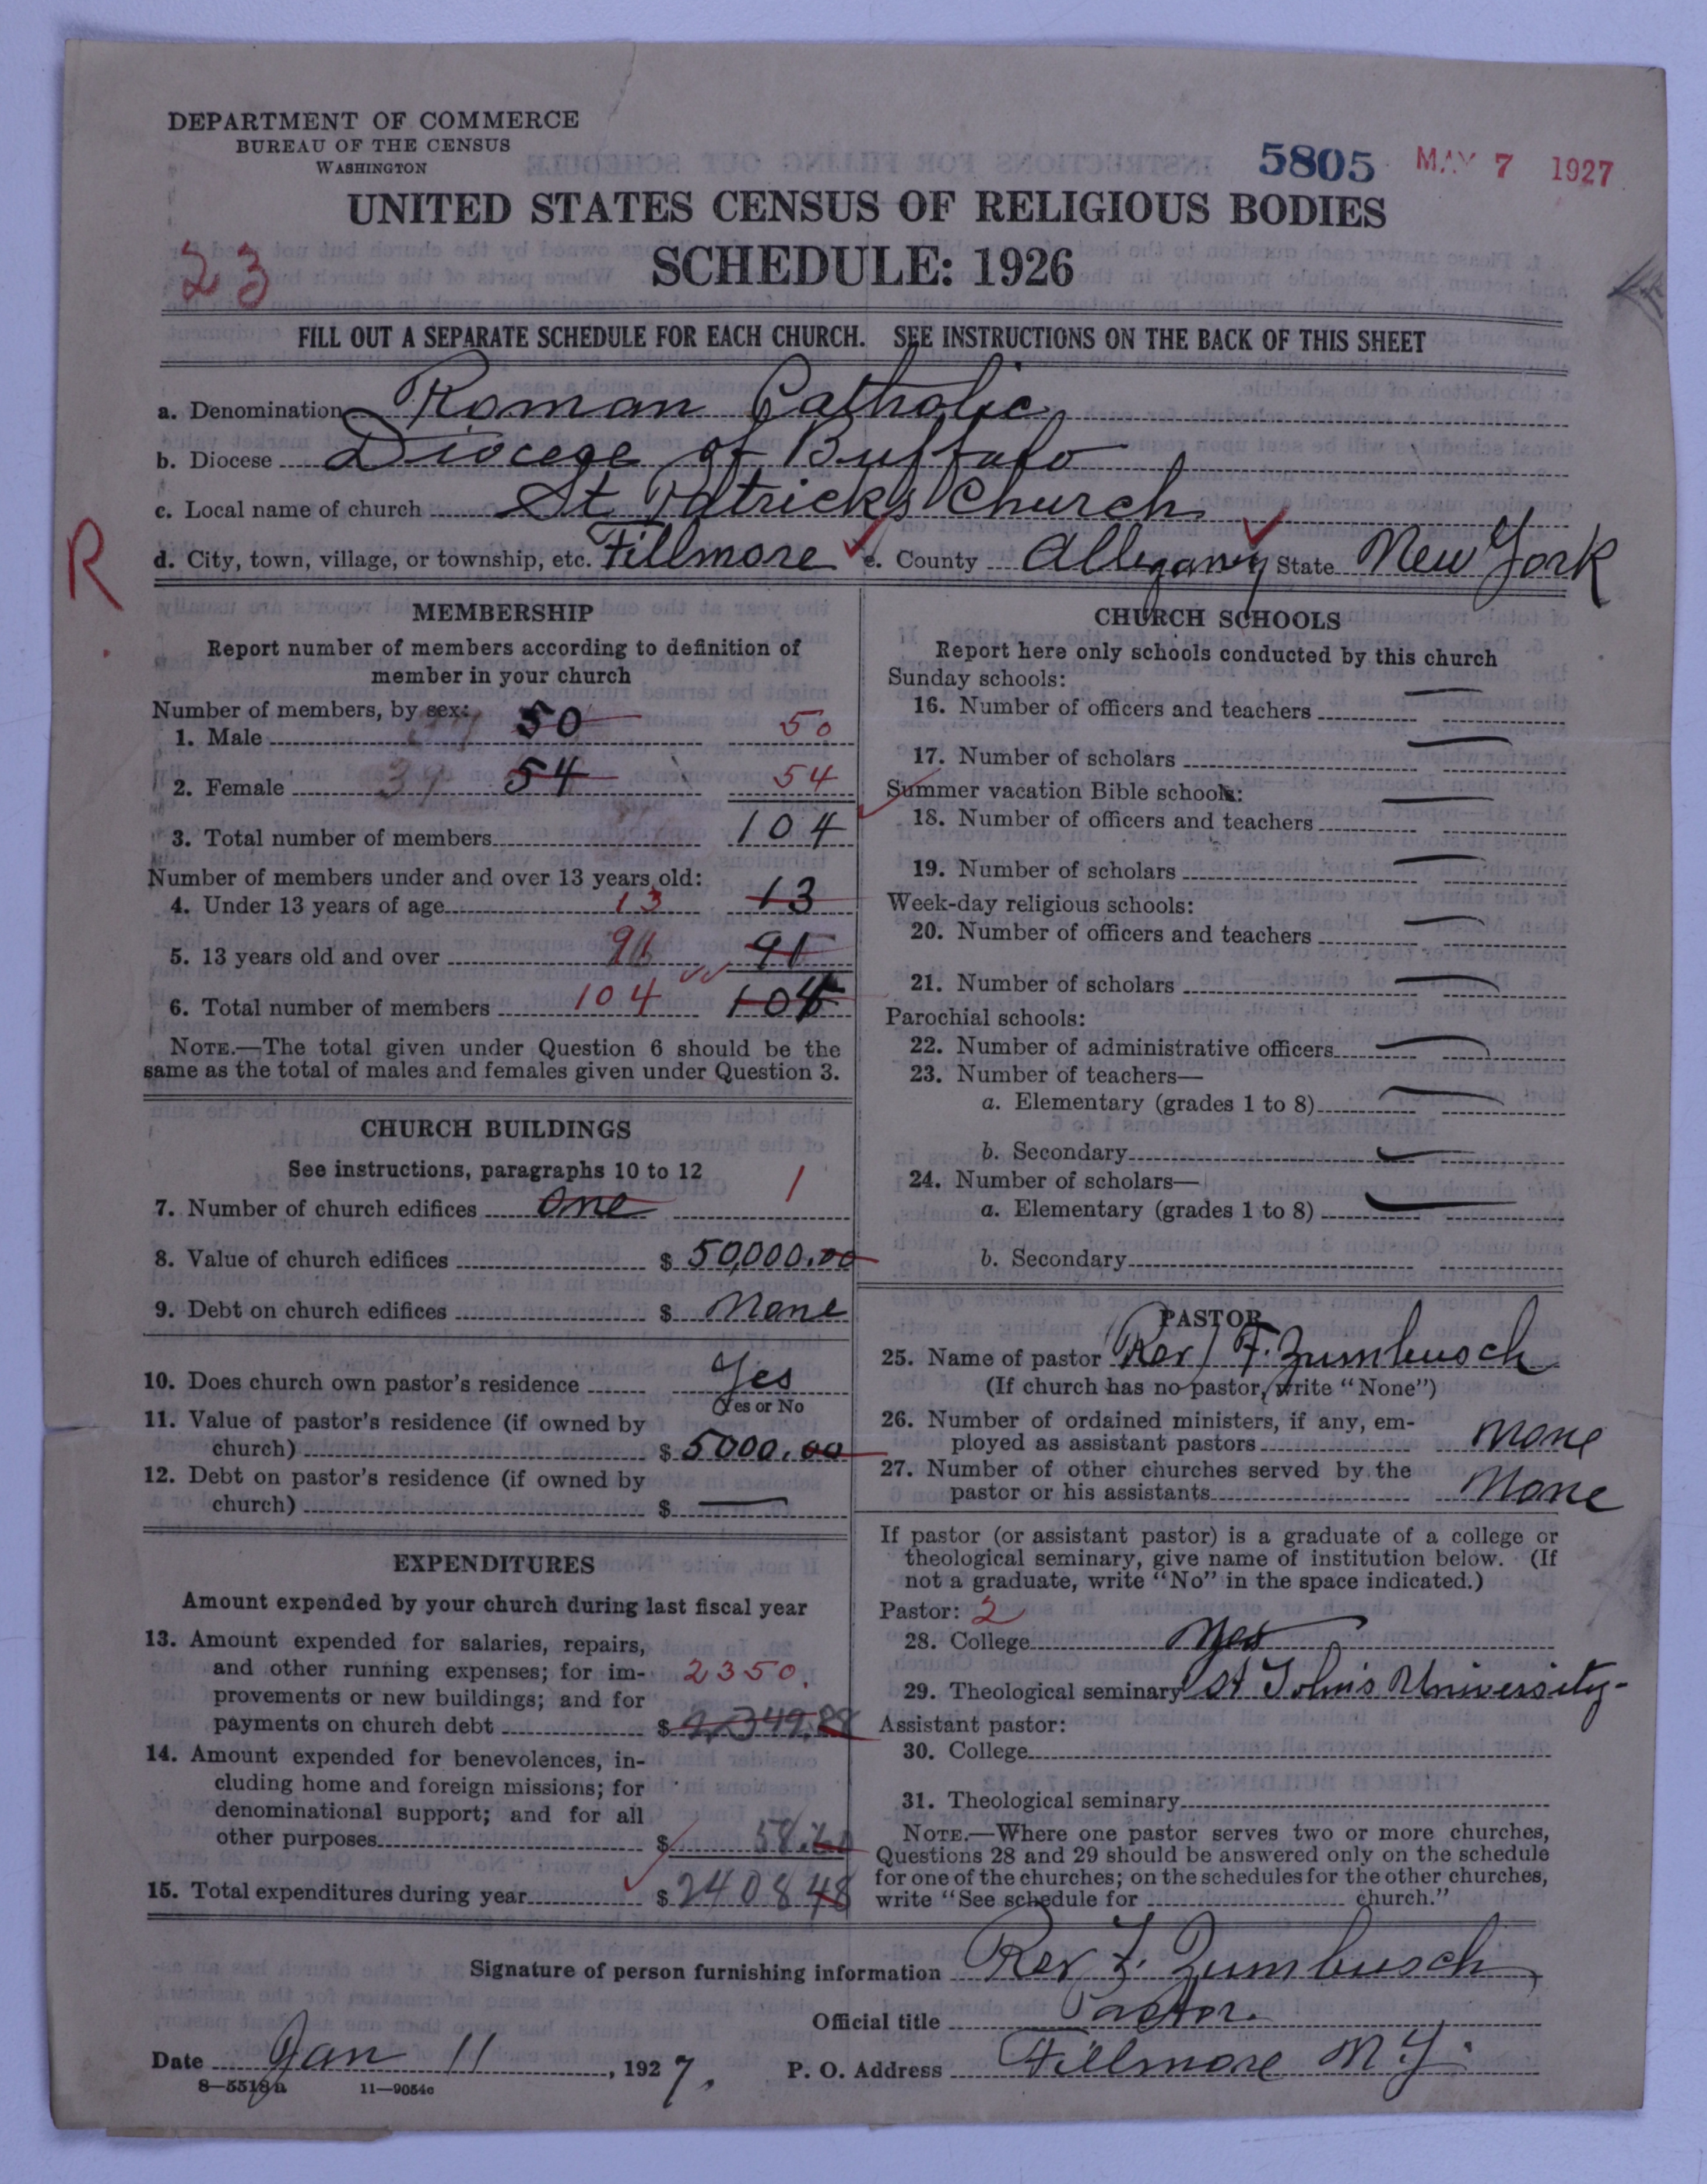 DEPARTMENT OF COMMERCE
BUREAU OF THE CENSUS
WASHINGTON
5805 MAY 7 1927
UNITED STATES CENSUS OF RELIGIOUS BODIES
SCHEDULE: 1926
23
FILL OUT A SEPARATE SCHEDULE FOR EACH CHURCH. SEE INSTRUCTIONS ON THE BACK OF THIS SHEET
a. Denomination Roman Catholic
b. Diocese Diocese of Buffalo
c. Local name of church St Patricks Church
R
d. City, town, village, or township, etc. Fillmore e. County Allegany State New York
MEMBERSHIP
Report number of members according to definition of
member in your church
Number of members, by sex:
1. Male 50 50
2. Female 54 54
3. Total number of members 104
Number of members under and over 13 years old:
4. Under 13 years of age 13 13
5. 13 years old and over 91 91
6. Total number of members 104 104
NOTE.—The total given under Question 6 should be the
same as the total of males and females given under Question 3.
CHURCH BUILDINGS
See instructions, paragraphs 10 to 12
7. Number of church edifices one 1
8. Value of church edifices $ 50,000.00
9. Debt on church edifices $ None
10. Does church own pastor's residence Yes
Yes or No
11. Value of pastor's residence (if owned by
church) $ 5000.00
12. Debt on pastor's residence (if owned by
church) $ —
EXPENDITURES
Amount expended by your church during last fiscal year
13. Amount expended for salaries, repairs,
and other running expenses; for im- 2350.
provements or new buildings; and for
payments on church debt $ 2,349.88
14. Amount expended for benevolences, in-
cluding home and foreign missions; for
denominational support; and for all
other purposes $ 58.60
15. Total expenditures during year $ 2408 48
CHURCH SCHOOLS
Report here only schools conducted by this church
Sunday schools:
16. Number of officers and teachers —
17. Number of scholars —
Summer vacation Bible schools:
18. Number of officers and teachers —
19. Number of scholars —
Week-day religious schools:
20. Number of officers and teachers —
21. Number of scholars —
Parochial schools:
22. Number of administrative officers —
23. Number of teachers—
a. Elementary (grades 1 to 8) —
b. Secondary —
24. Number of scholars—
a. Elementary (grades 1 to 8) —
b. Secondary
PASTOR
25. Name of pastor Rev F. Zumbusch
(If church has no pastor, write "None")
26. Number of ordained ministers, if any, em-
ployed as assistant pastors None
27. Number of other churches served by the
pastor or his assistants None
If pastor (or assistant pastor) is a graduate of a college or
theological seminary, give name of institution below. (If
not a graduate, write "No" in the space indicated.)
Pastor: 2
28. College Yes
29. Theological seminary St John's University
Assistant pastor:
30. College
31. Theological seminary
NOTE.—Where one pastor serves two or more churches,
Questions 28 and 29 should be answered only on the schedule
for one of the churches; on the schedules for the other churches,
write "See schedule for church."
Signature of person furnishing information Rev F. Zumbusch
Official title Pastor.
Date Jan 11, 1927. P. O. Address Fillmore N.Y.
8—5518a 11—9054c